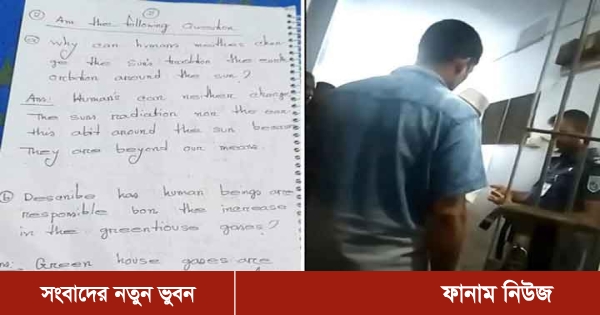 Ans the following Question
(a) Why can humans neither chan
ge the sun's radiation the earth
orbitation around the sun?
Ans: Human's can neither change
The sun radiation nor the ear
this abit around the sun becau
They are beyond our means.
(b) Describe has human beings are
responsible bon the increase
in the greenhouse gases?
Green house gases are
সংবাদের নতুন ভুবন
ফানাম নিউজ